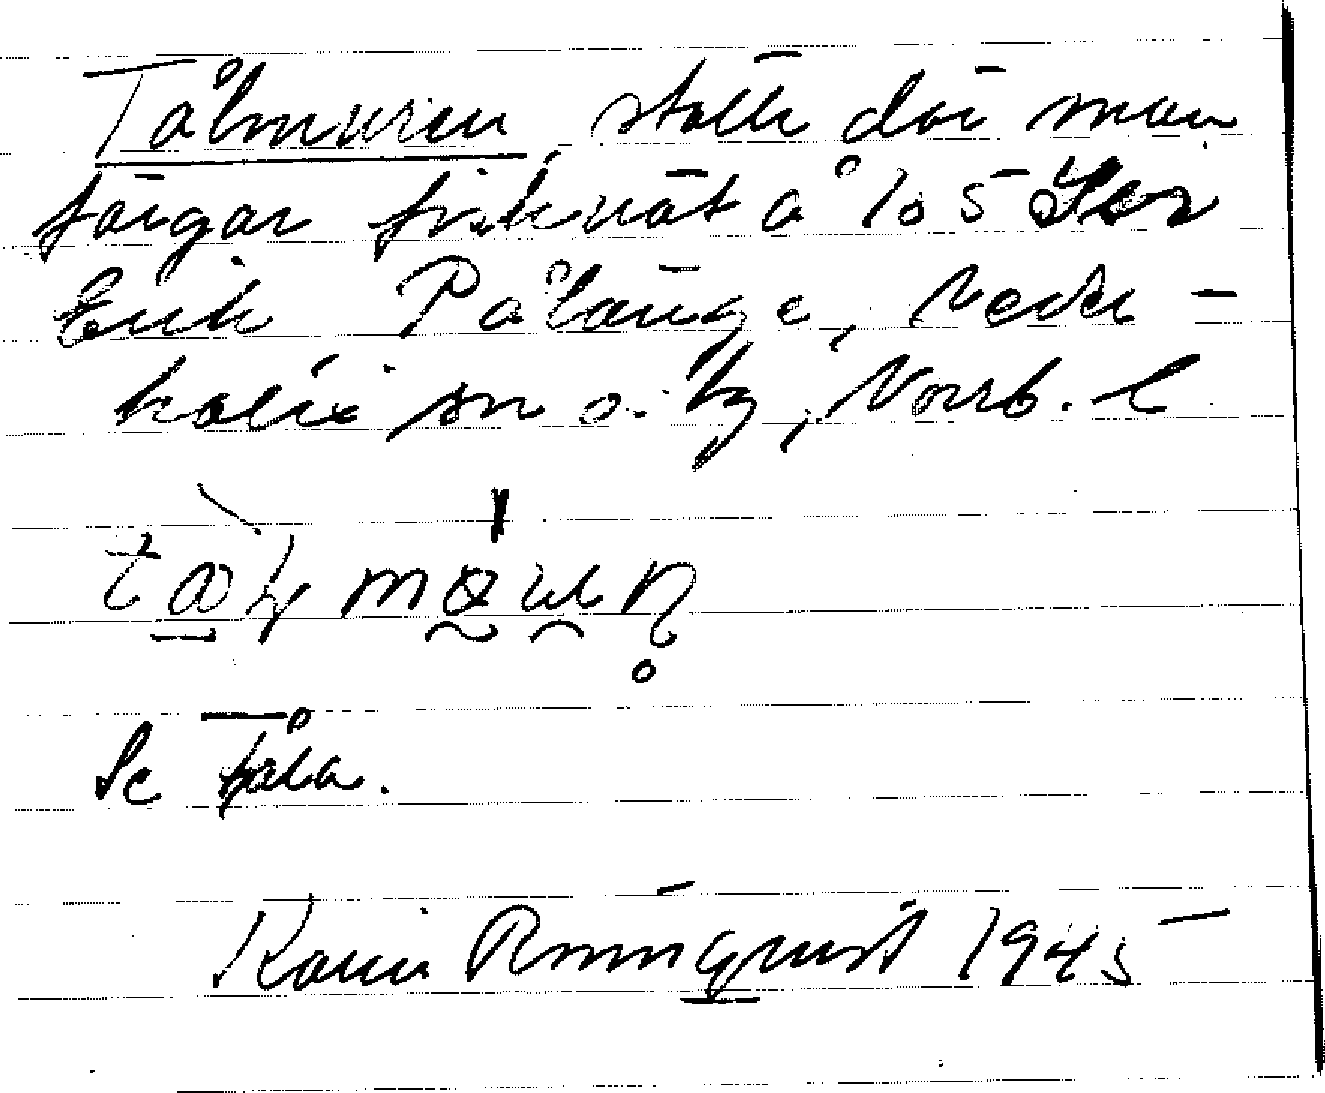 Tålmuren, ställe där man
färgar fisknät å 105
Erik Pålänge, Neder-
kalix sn o. tg, Norrb. l
Se tåla.
Karin Rönnqvist 1945